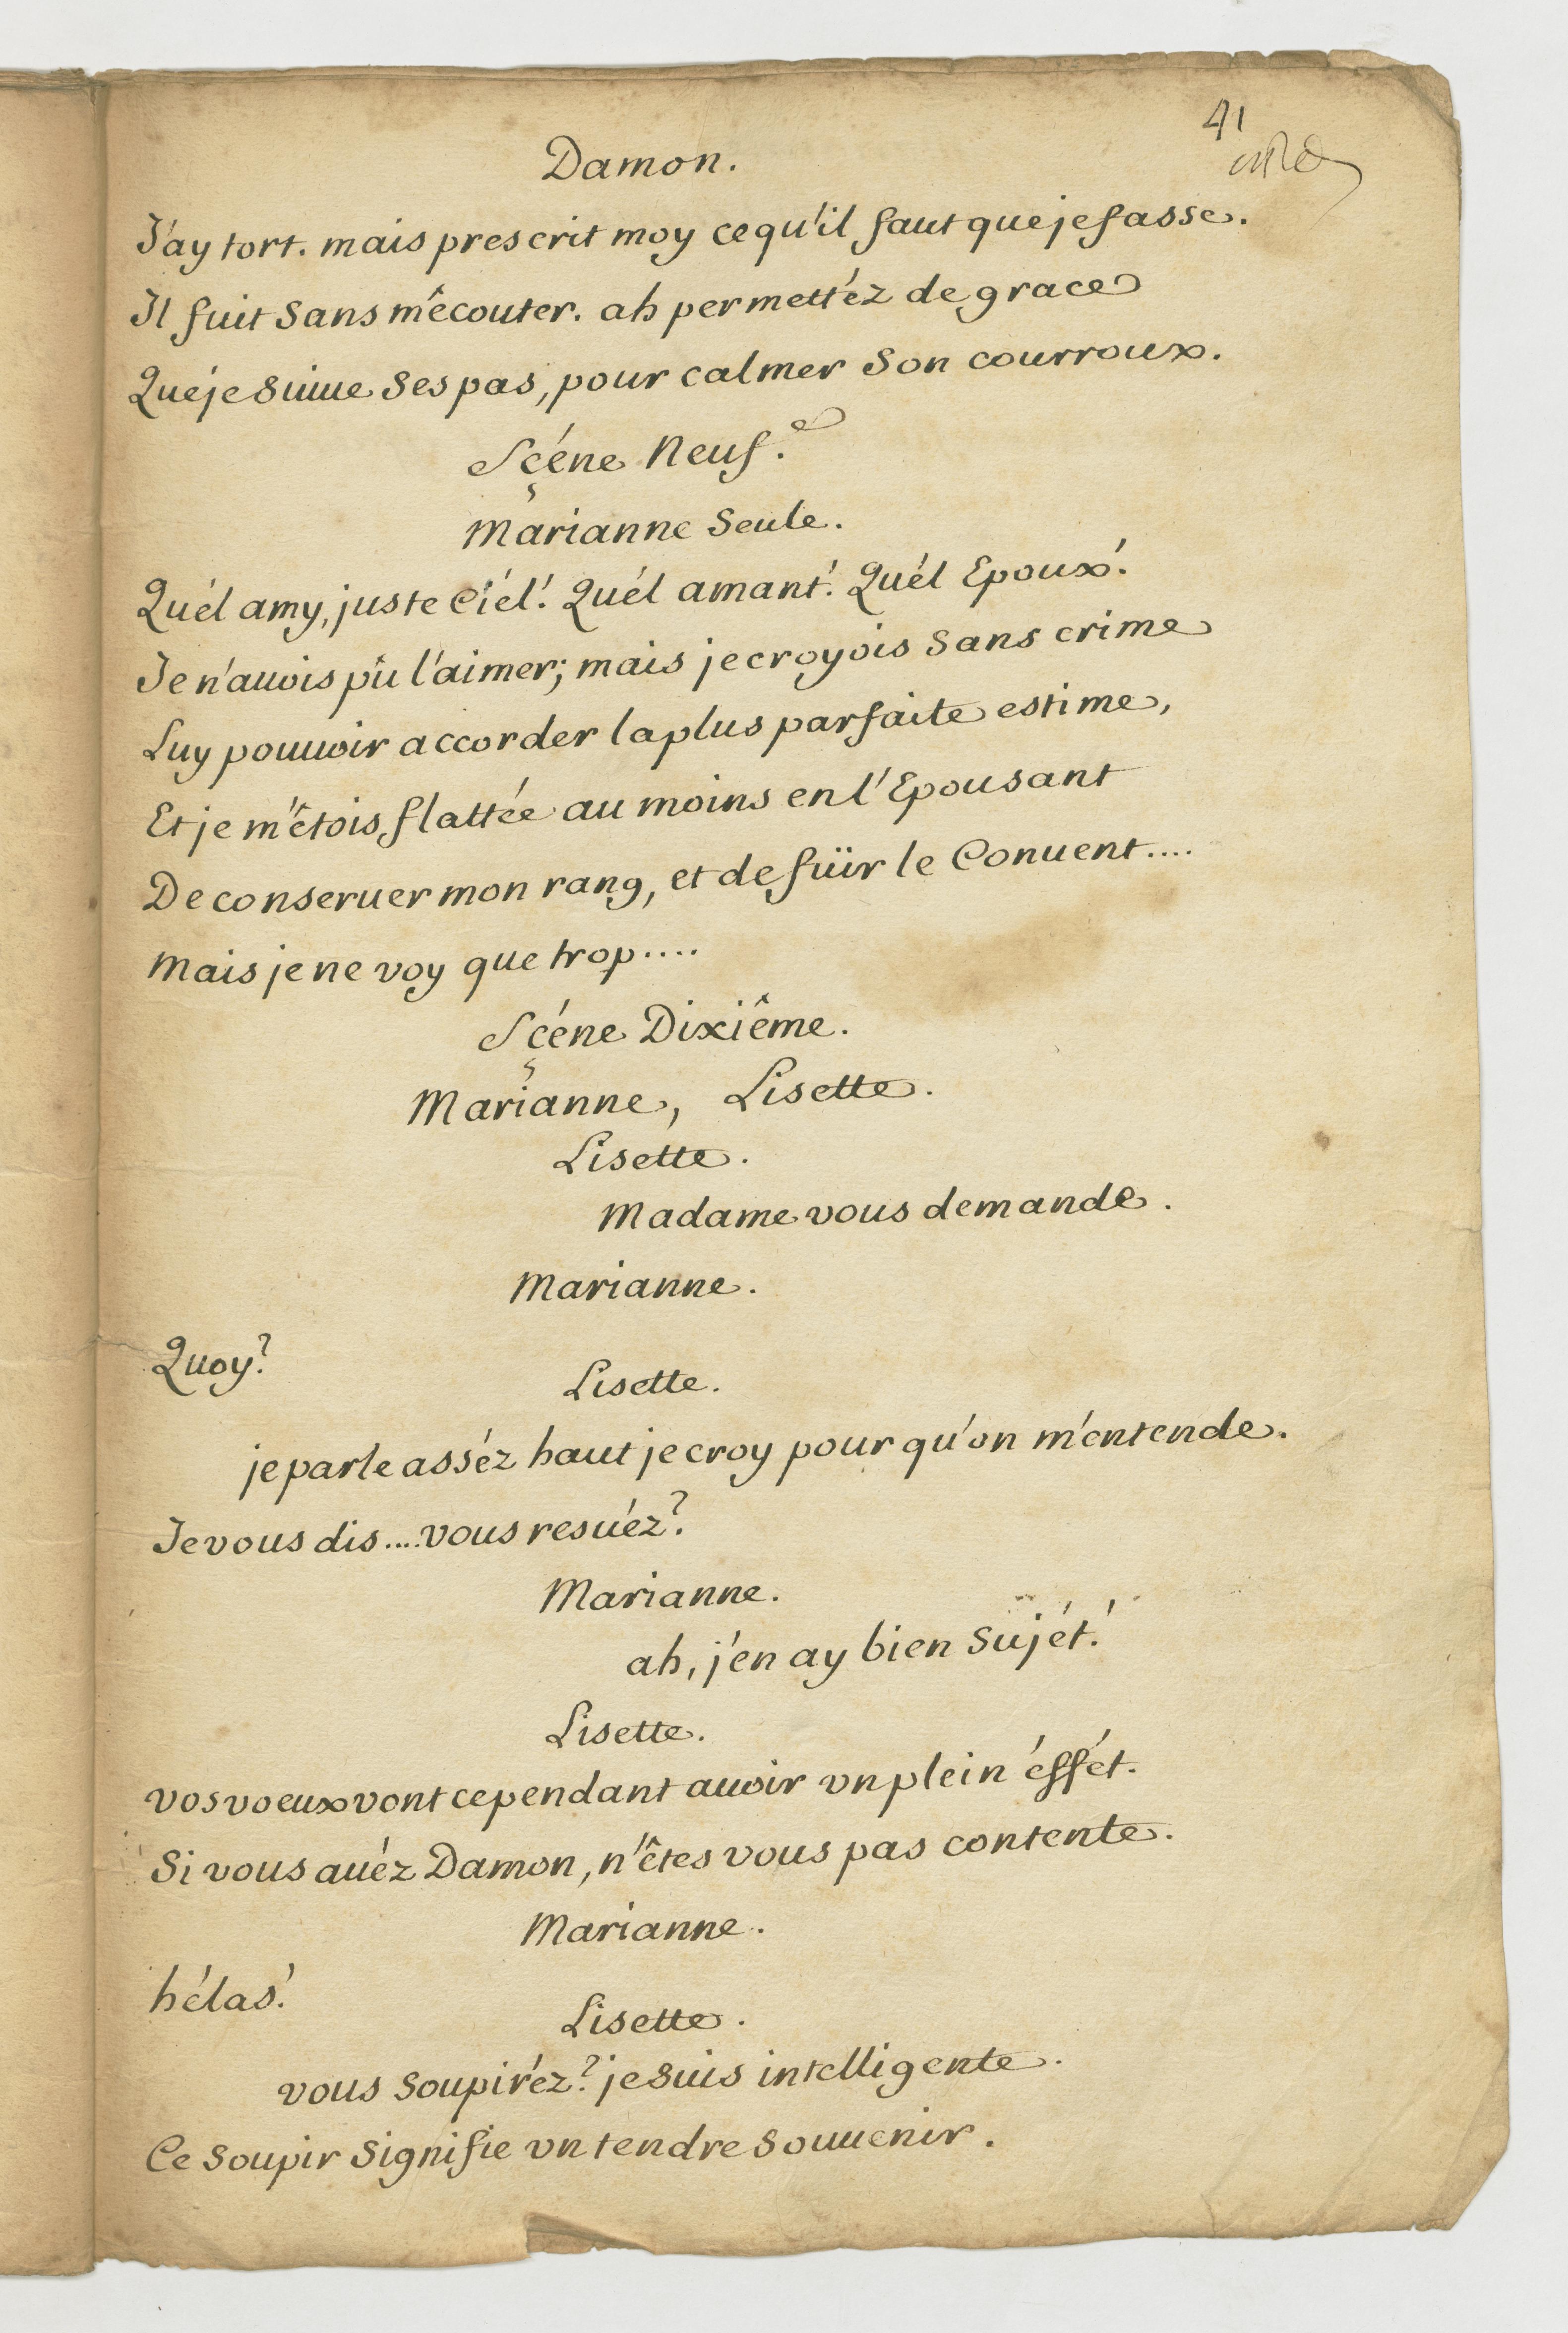 41
Damon.
J'ay tort. mais prescrit moy ce qu'il faut que je fasse.
Il fuit sans m'écouter. ah permettéz de grace
Que je suiue ses pas, pour calmer son courroux.
Sçéne Neuf.e
Marianne seule.
Quél amy, juste Ciél! Quél amant! Quél Epoux!
Je n'auois pû l'aimer; mais je croyois sans crime
Luy pouuoir accorder la plus parfaite estime,
Et je m'êtois flattée au moins en l'Epousant
De conseruer mon rang, et de fuïr le Conuent....
Mais je ne voy que trop....
Sçéne Dixiême.
Marianne, Lisette.
Lisette.
Madame vous demande.
Marianne.
Quoy?
Lisette.
je parle asséz haut je croy pour qu'on m'entende.
Je vous dis.... vous resuéz?
Marianne.
ah, j'en ay bien sujét!
Lisette.
vos voeux vont cependant auoir vn plein éffét.
Si vous auéz Damon, n'êtes vous pas contente.
Marianne.
hélas!
Lisette.
vous soupiréz? je suis intelligente.
Ce soupir signifie vn tendre souuenir.